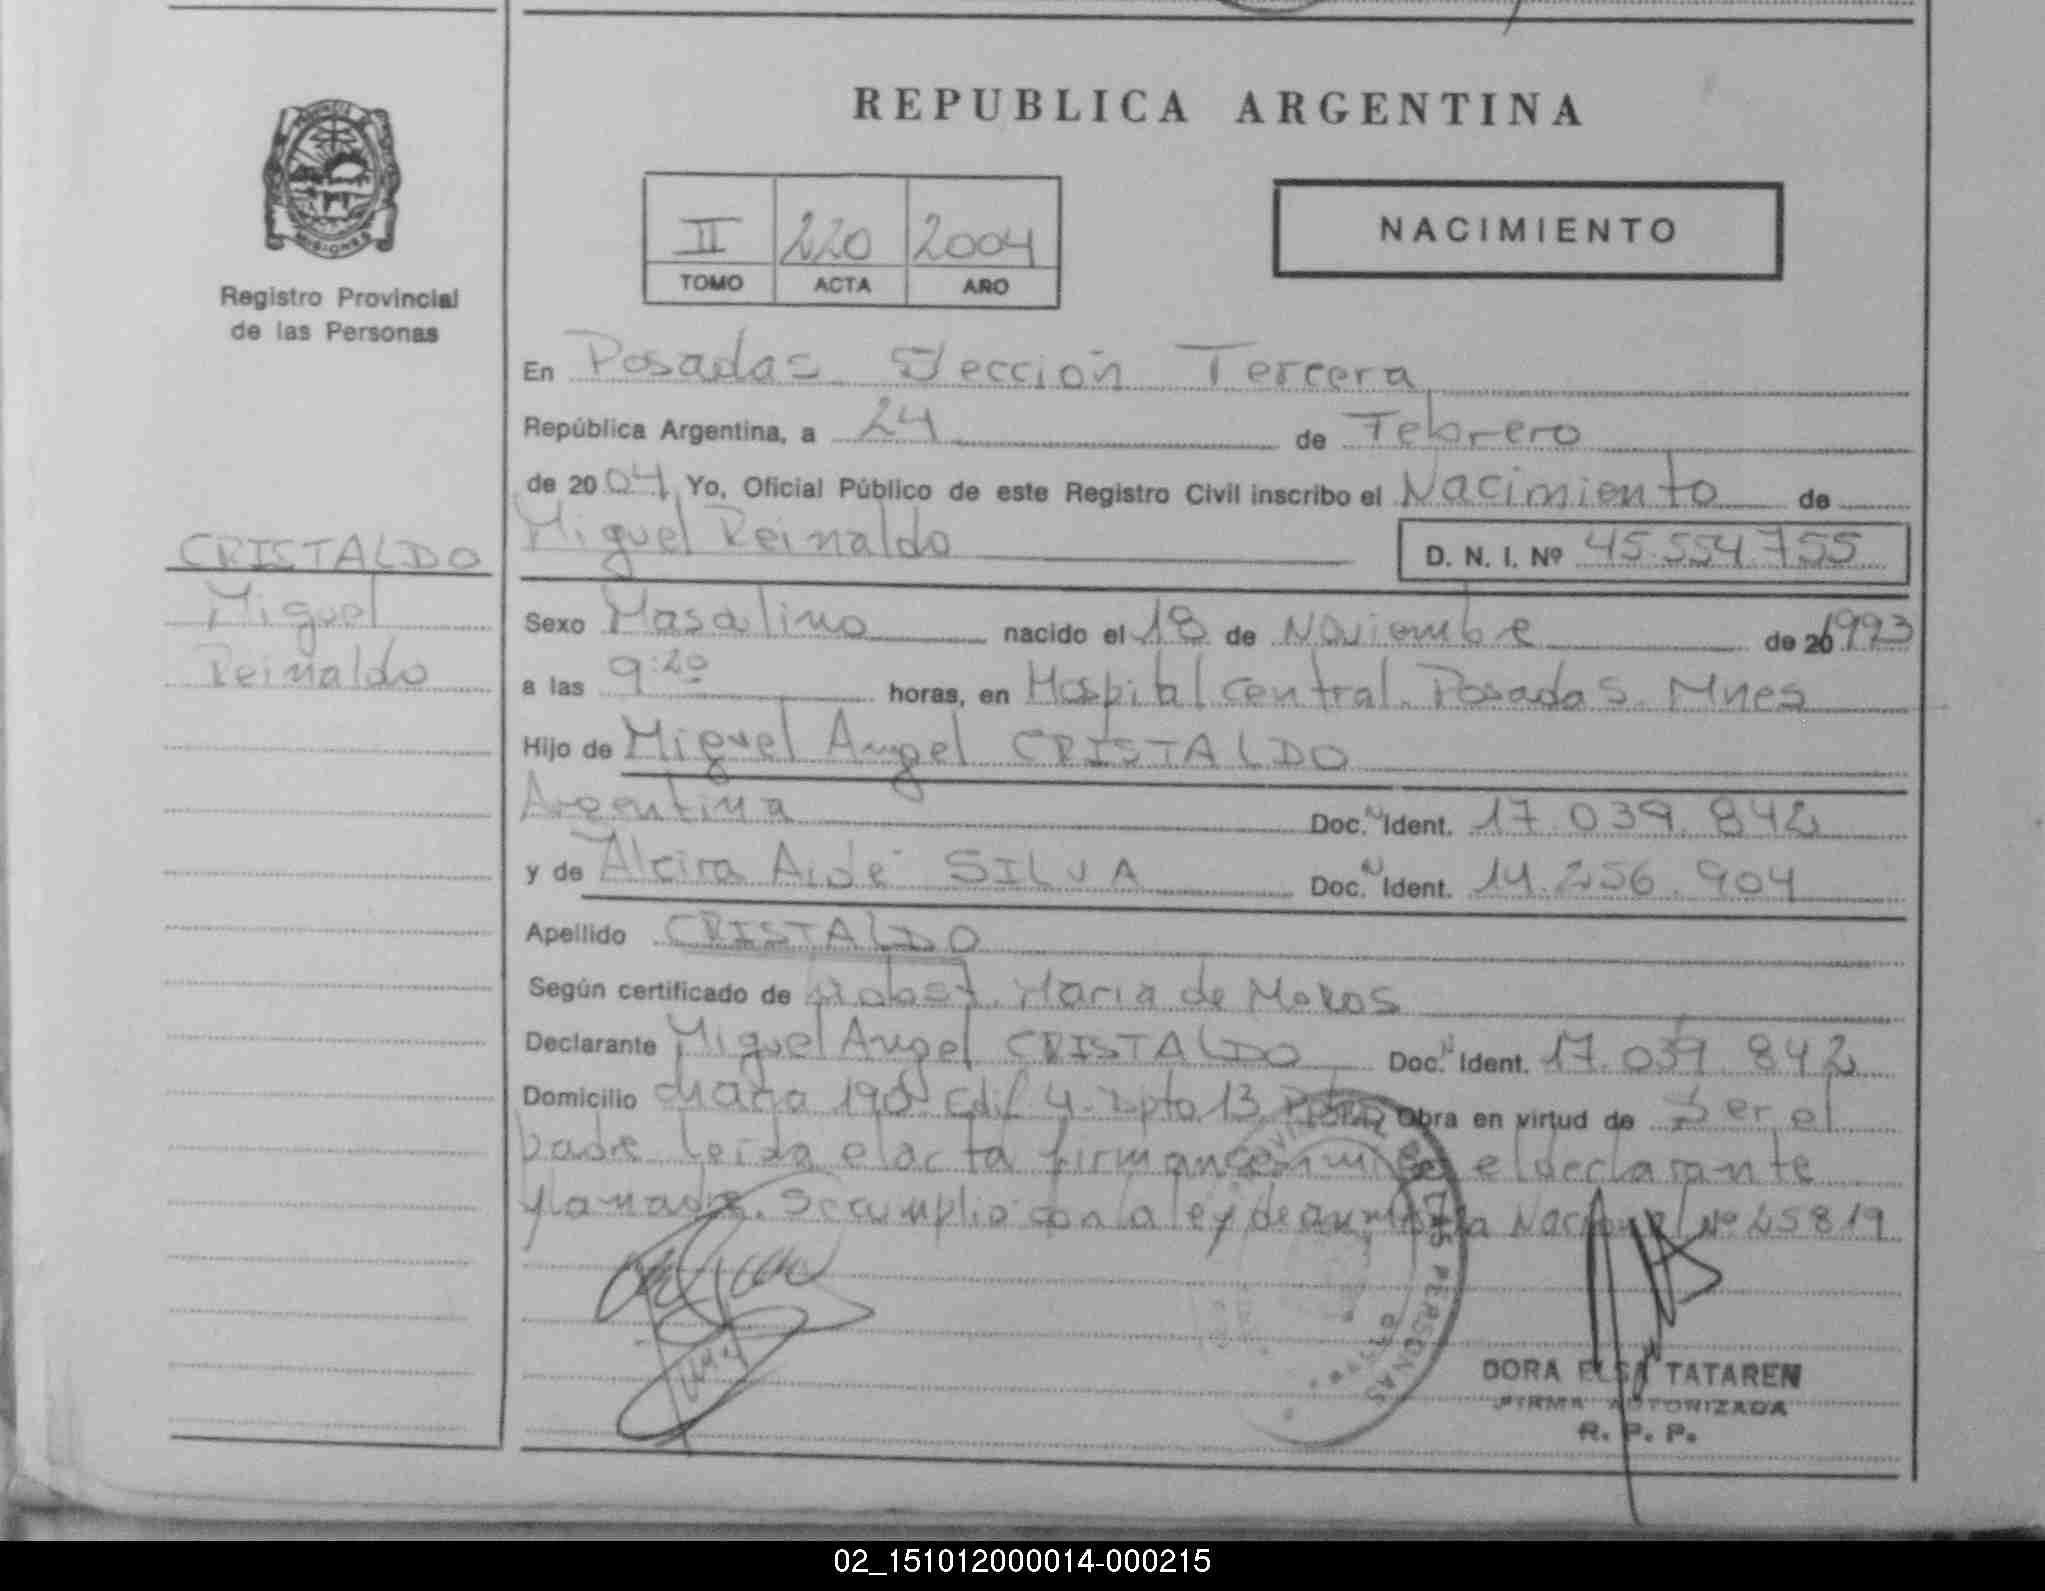 REPUBLICA ARGENTINA
MISIONES
Registro Provincial
de las Personas
II 220 2004
TOMO ACTA AÑO
NACIMIENTO
En Posadas Sección Tercera
República Argentina, a 24 de Febrero
de 2004 Yo, Oficial Público de este Registro Civil inscribo el Nacimiento de
Miguel Reinaldo D. N. I. Nº 45.554.755
CRISTALDO
Miguel
Reinaldo
Sexo Masculino nacido el 18 de Noviembre de 20 1993
a las 9:20 horas, en Hospital Central. Posadas. Mnes
Hijo de Miguel Angel CRISTALDO
Argentina Doc. N Ident. 17.039.842
y de Alcira Aidé SILVA Doc. N Ident. 14.256.904
Apellido CRISTALDO
Según certificado de Maria de
Declarante Miguel Angel CRISTALDO Doc. N Ident. 17.039.842
Domicilio chaca 190 Edif 4. Dpto 13 Obra en virtud de Ser el
padre leida el acta firman el declarante
y la madre. Se cumplio con la ley de Nacional Nº 25819
PERSONAS
DORA ELSA TATAREN
FIRMA AUTORIZADA
R. P. P.
02_151012000014-000215